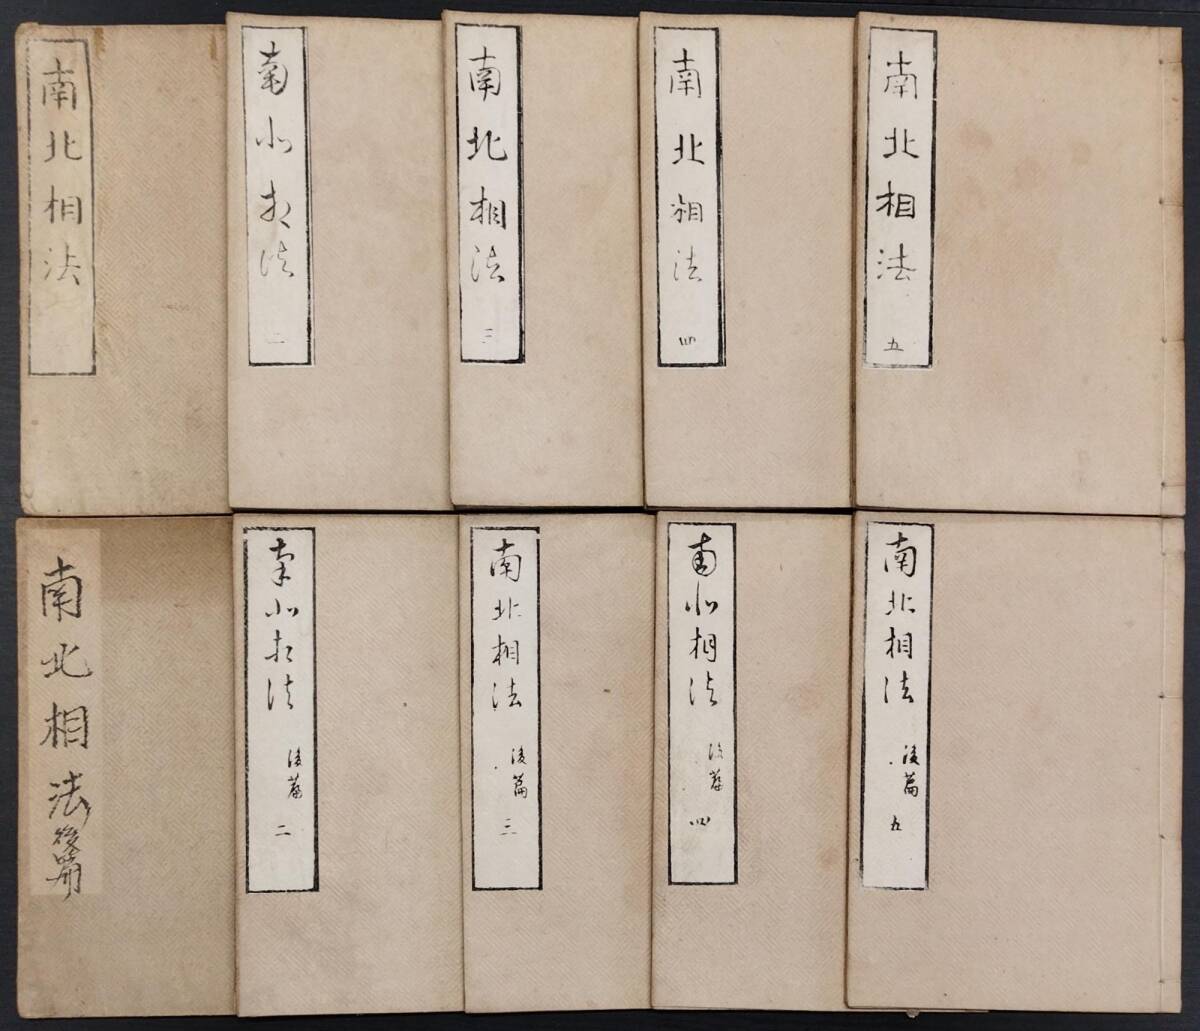 南北相法
南北相法 二
南北相法 三
南北相法 四
南北相法 五
南北相法後篇
南北相法 後篇 二
南北相法 後篇 三
南北相法 後篇 四
南北相法 後篇 五